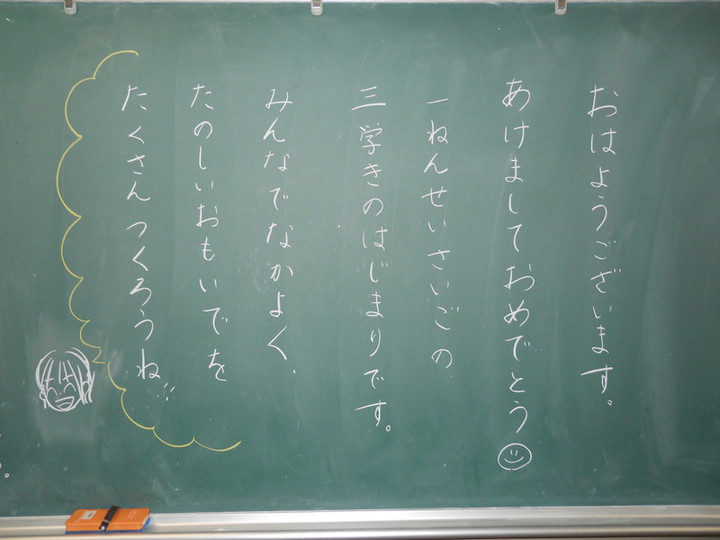 おはようございます。
あけましておめでとう
一ねんせいさいごの
三学きのはじまりです。
みんなでなかよく、
たのしいおもいでを
たくさんつくろうね!!